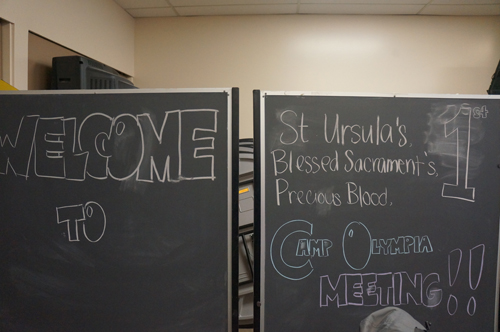 WELCOME
TO
St Ursula's,
Blessed Sacrament's,
Precious Blood,
1st
CAMP OLYMPIA
MEETING!!